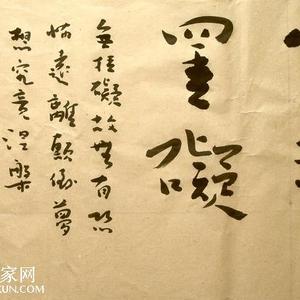 罣礙
無挂礙故無有恐
怖遠離顛倒夢
想究竟涅槃
家网
KUN.COM